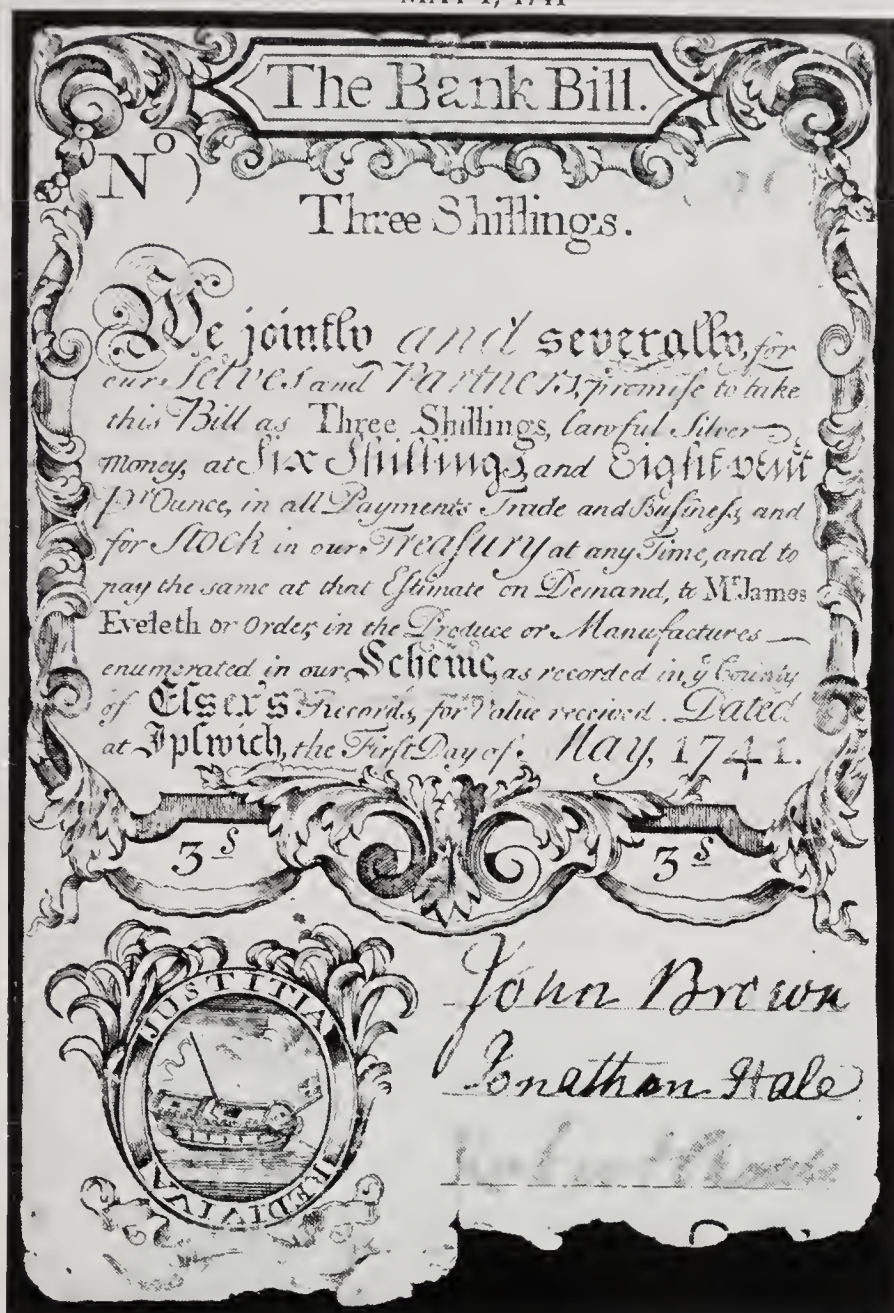 MAY 1, 1741
The Bank Bill.
No)
Three Shillings.
We jointly and severally, for
our Selves and Partners, promise to take
this Bill as Three Shillings, lawful Silver
Money, at Six Shillings, and Eight pence
pr Ounce, in all Payments Trade and Business, and
for Stock in our Treasury at any Time, and to
pay the same at that Estimate on Demand, to Mr James
Eveleth or Order, in the Produce or Manufactures
enumerated in our Scheme, as recorded in ye County
of Essex's Records, for Value received. Dated
at Ipswich, the First Day of May, 1741.
3s 3s
JUSTITIA
REDIVIVA
John Brown
Jonathan Hale